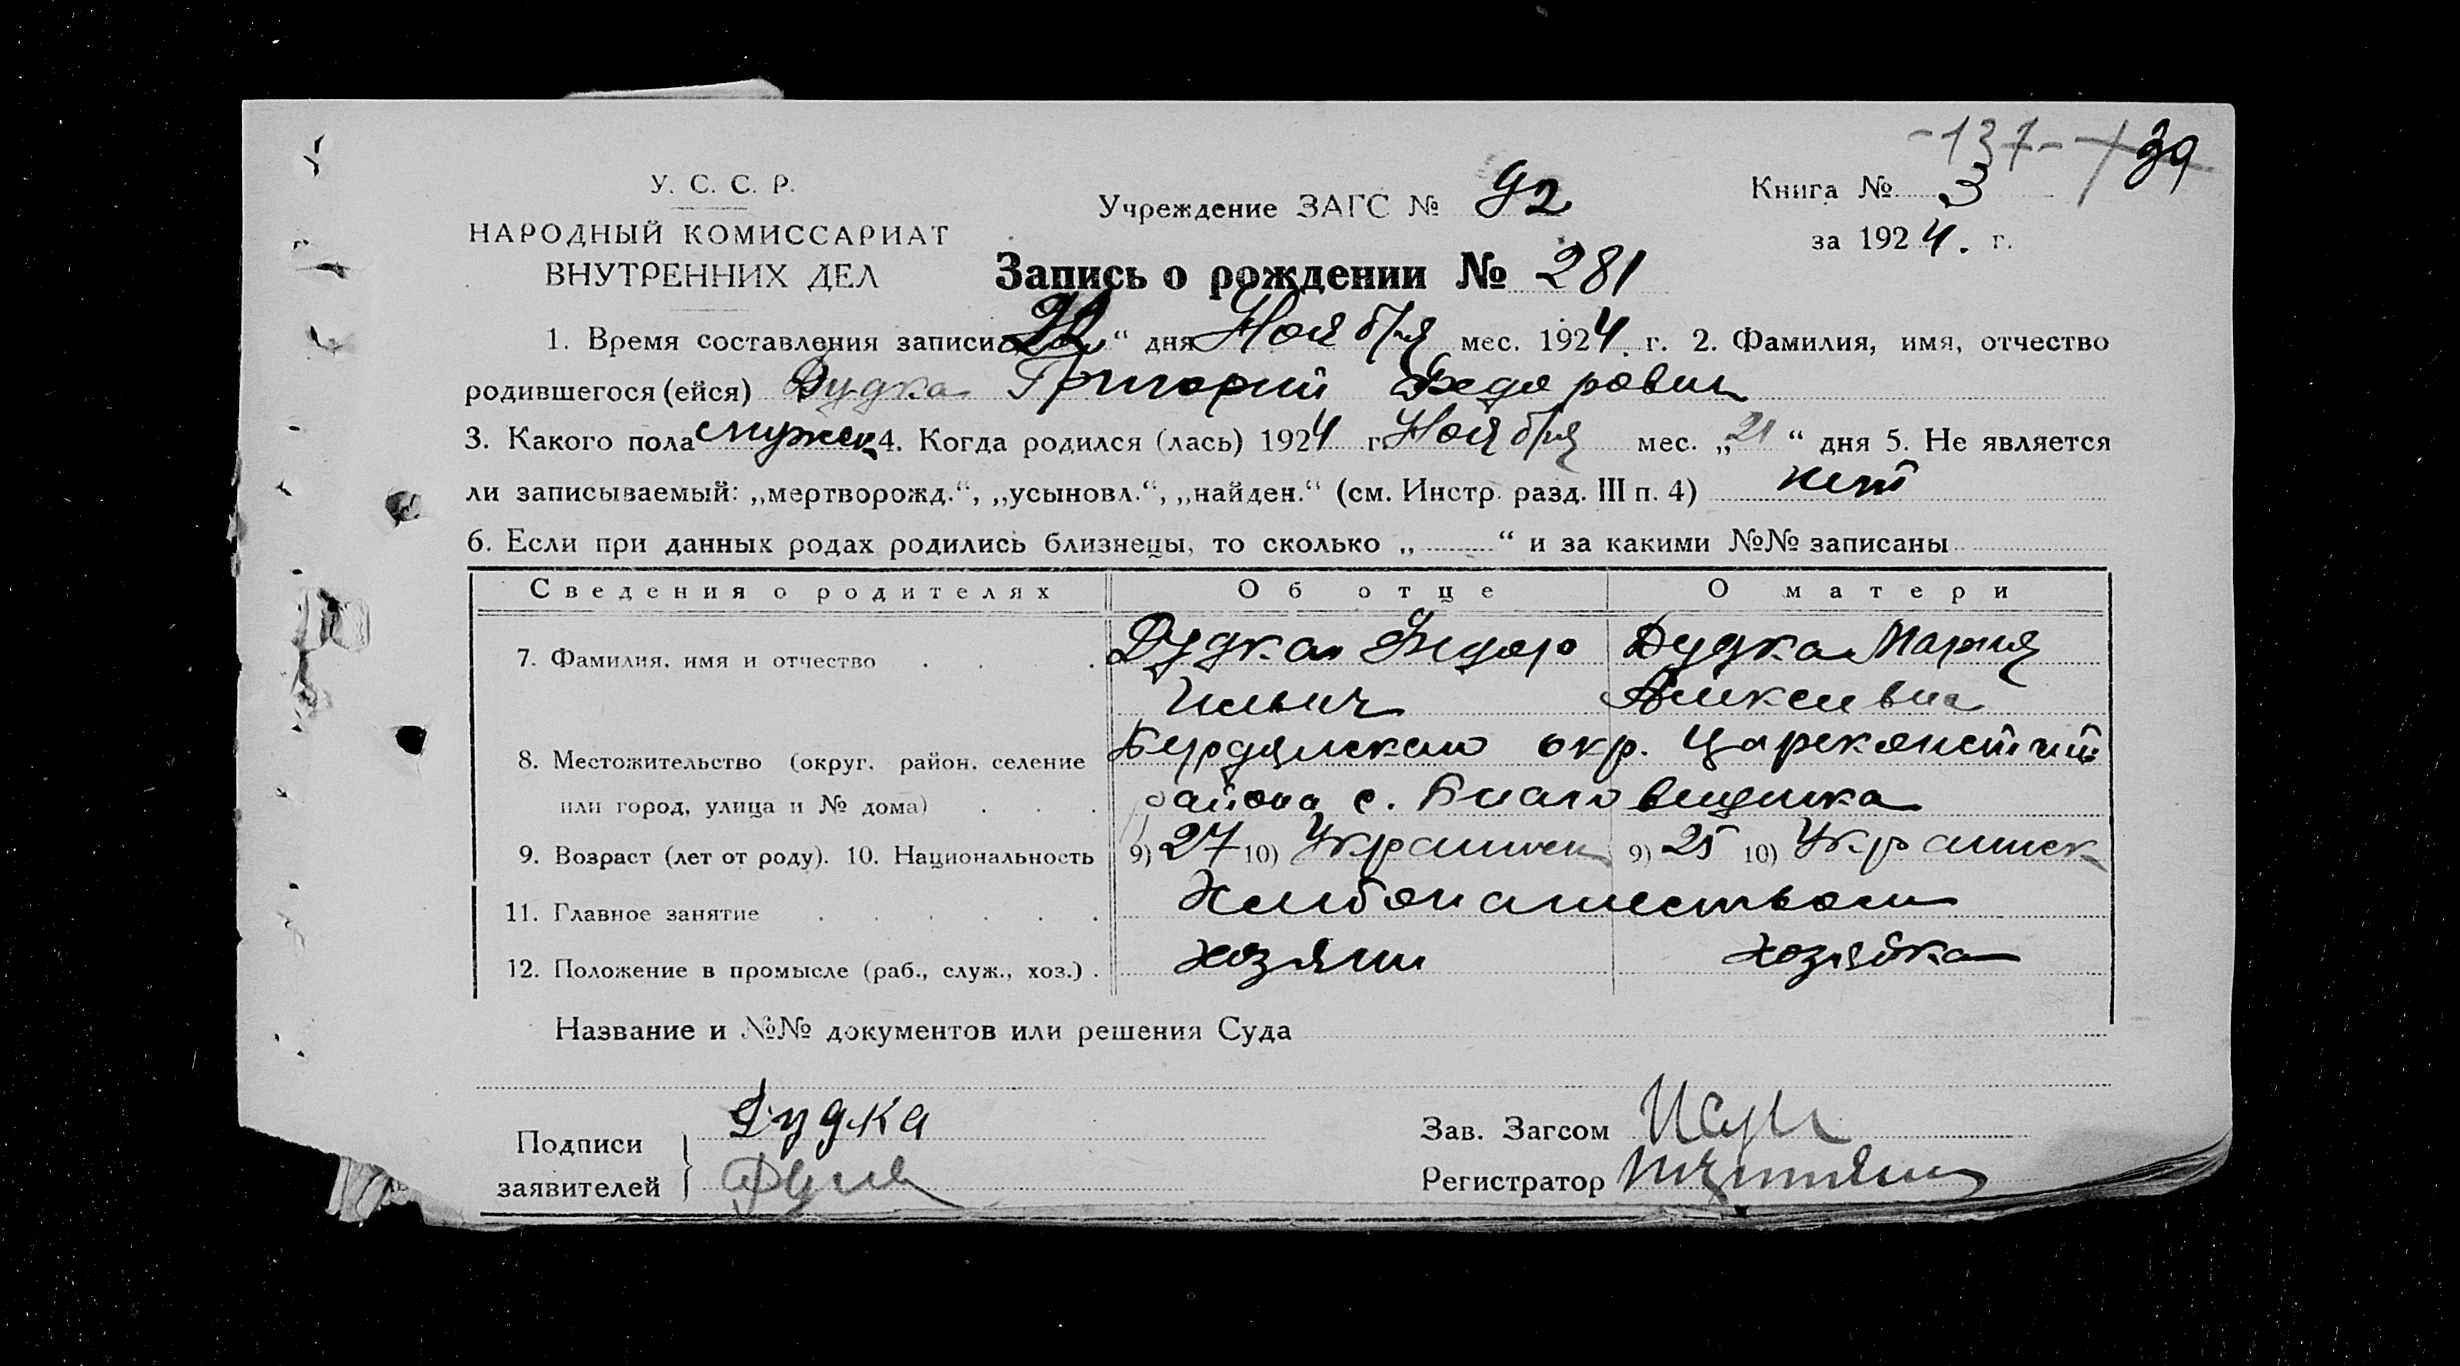 -137- 39
У. С. С. Р.
НАРОДНЫЙ КОМИССАРИАТ
ВНУТРЕННИХ ДЕЛ
Учреждение ЗАГС № 92
Книга № 3
за 1924. г.
Запись о рождении № 281
1. Время составления записи “ дня Ноября мес. 1924. г. 2. Фамилия, имя, отчество
родившегося (ейся) Дудка Григорий Федорович
3. Какого пола мужск 4. Когда родился (лась) 1924 г. Ноября мес. „21“ дня 5. Не является
ли записываемый: „мертворожд.“, „усыновл.“, „найден.“ (см. Инстр. разд. III п. 4) нет
6. Если при данных родах родились близнецы, то сколько „ “ и за какими №№ записаны
Сведения о родителях Об отце О матери
7. Фамилия, имя и отчество Дудка Федор Дудка Мария
Ильич
8. Местожительство (округ, район, селение окр.
или город, улица и № дома) района с.
9. Возраст (лет от роду). 10. Национальность 9) 27 10) Украинск 9) 25 10) Украинск
11. Главное занятие
12. Положение в промысле (раб., служ., хоз.) хозяин хозяйка
Название и №№ документов или решения Суда
Подписи
заявителей
Дудка
Зав. Загсом
Регистратор